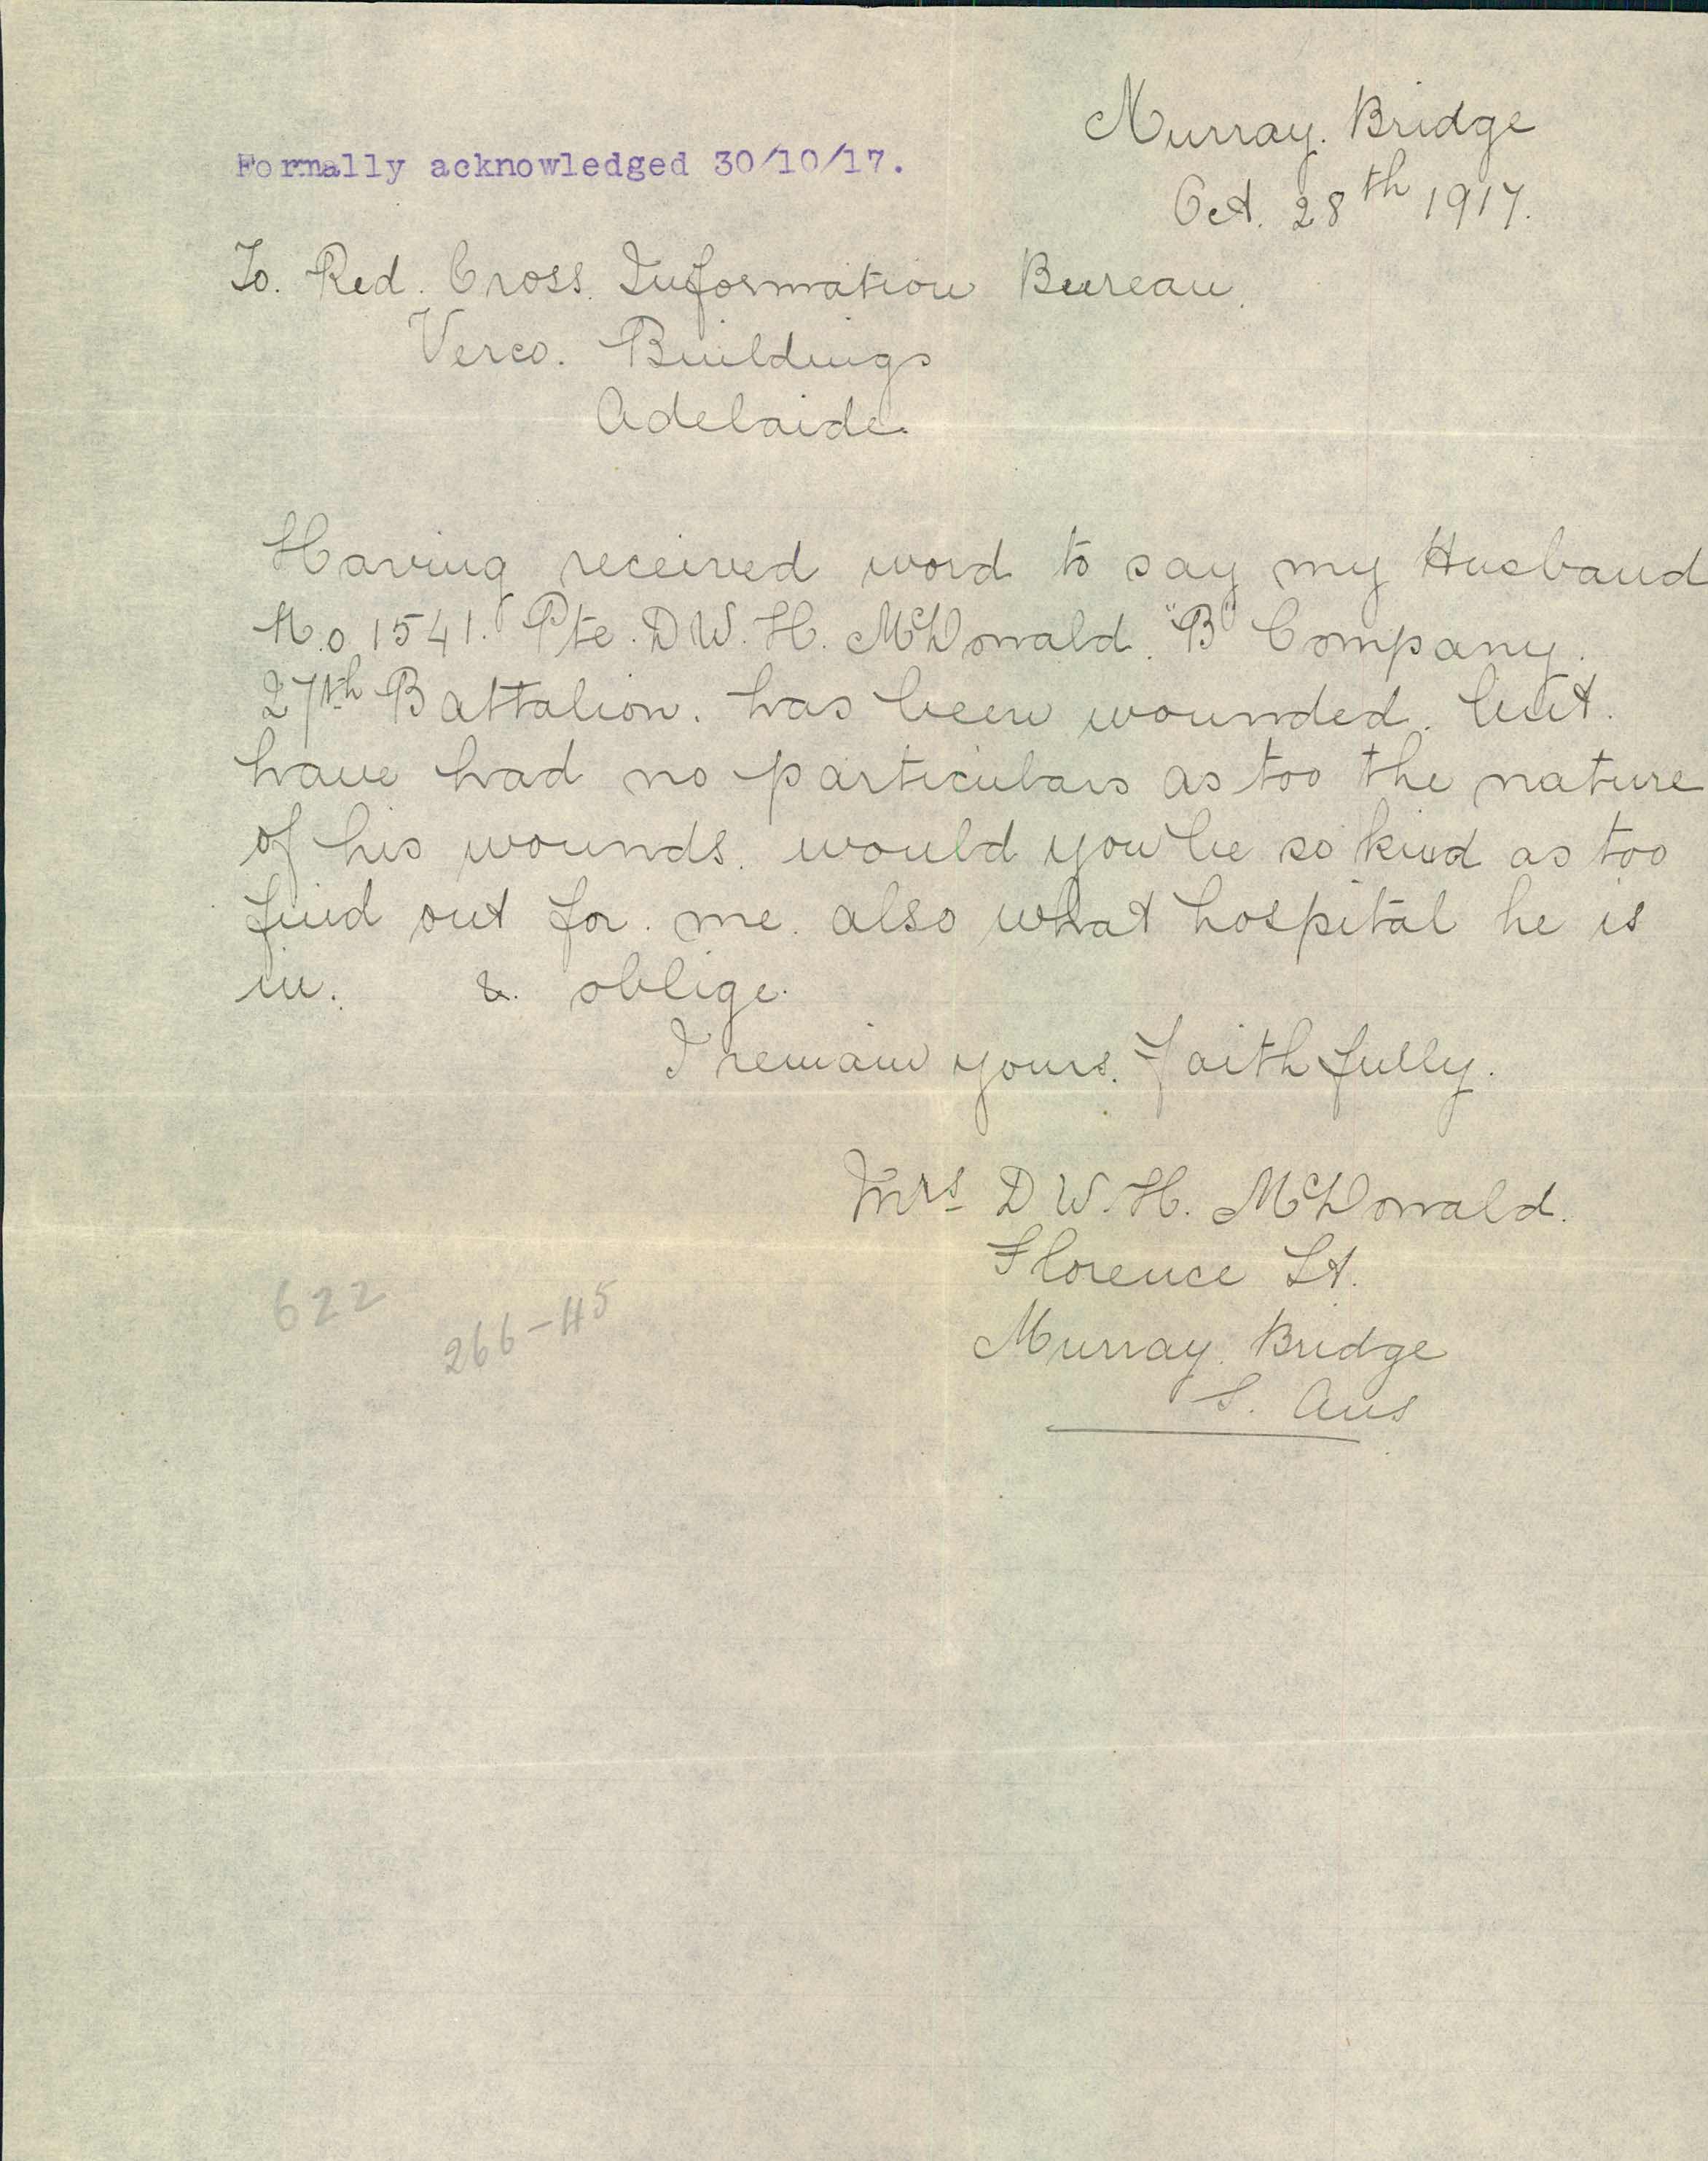 Murray. Bridge
Formally acknowledged 30/10/17.
Oct. 28th 1917.
To. Red. Cross. Information Bureau.
Verco. Buildings
Adelaide.
Having received word to say my Husband
No 1541. Pte. D W. H. McDonald. "B" Company.
27th Battalion. has been wounded. but.
have had no particulars as too the nature
of his wounds. would you be so kind as too
find out for. me. also what hospital he is
in. &. oblige.
I remain yours. faithfully.
Mrs D W. H. McDonald.
Florence St.
Murray. Bridge
S. Aus
622
266-45